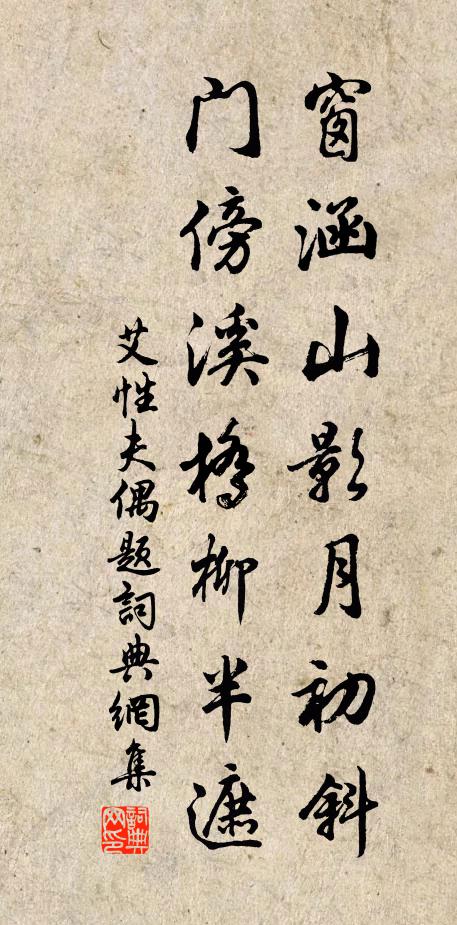 窗涵山影月初斜
门傍溪橋柳半遮
艾性夫偶题詞典網集
詞典网印